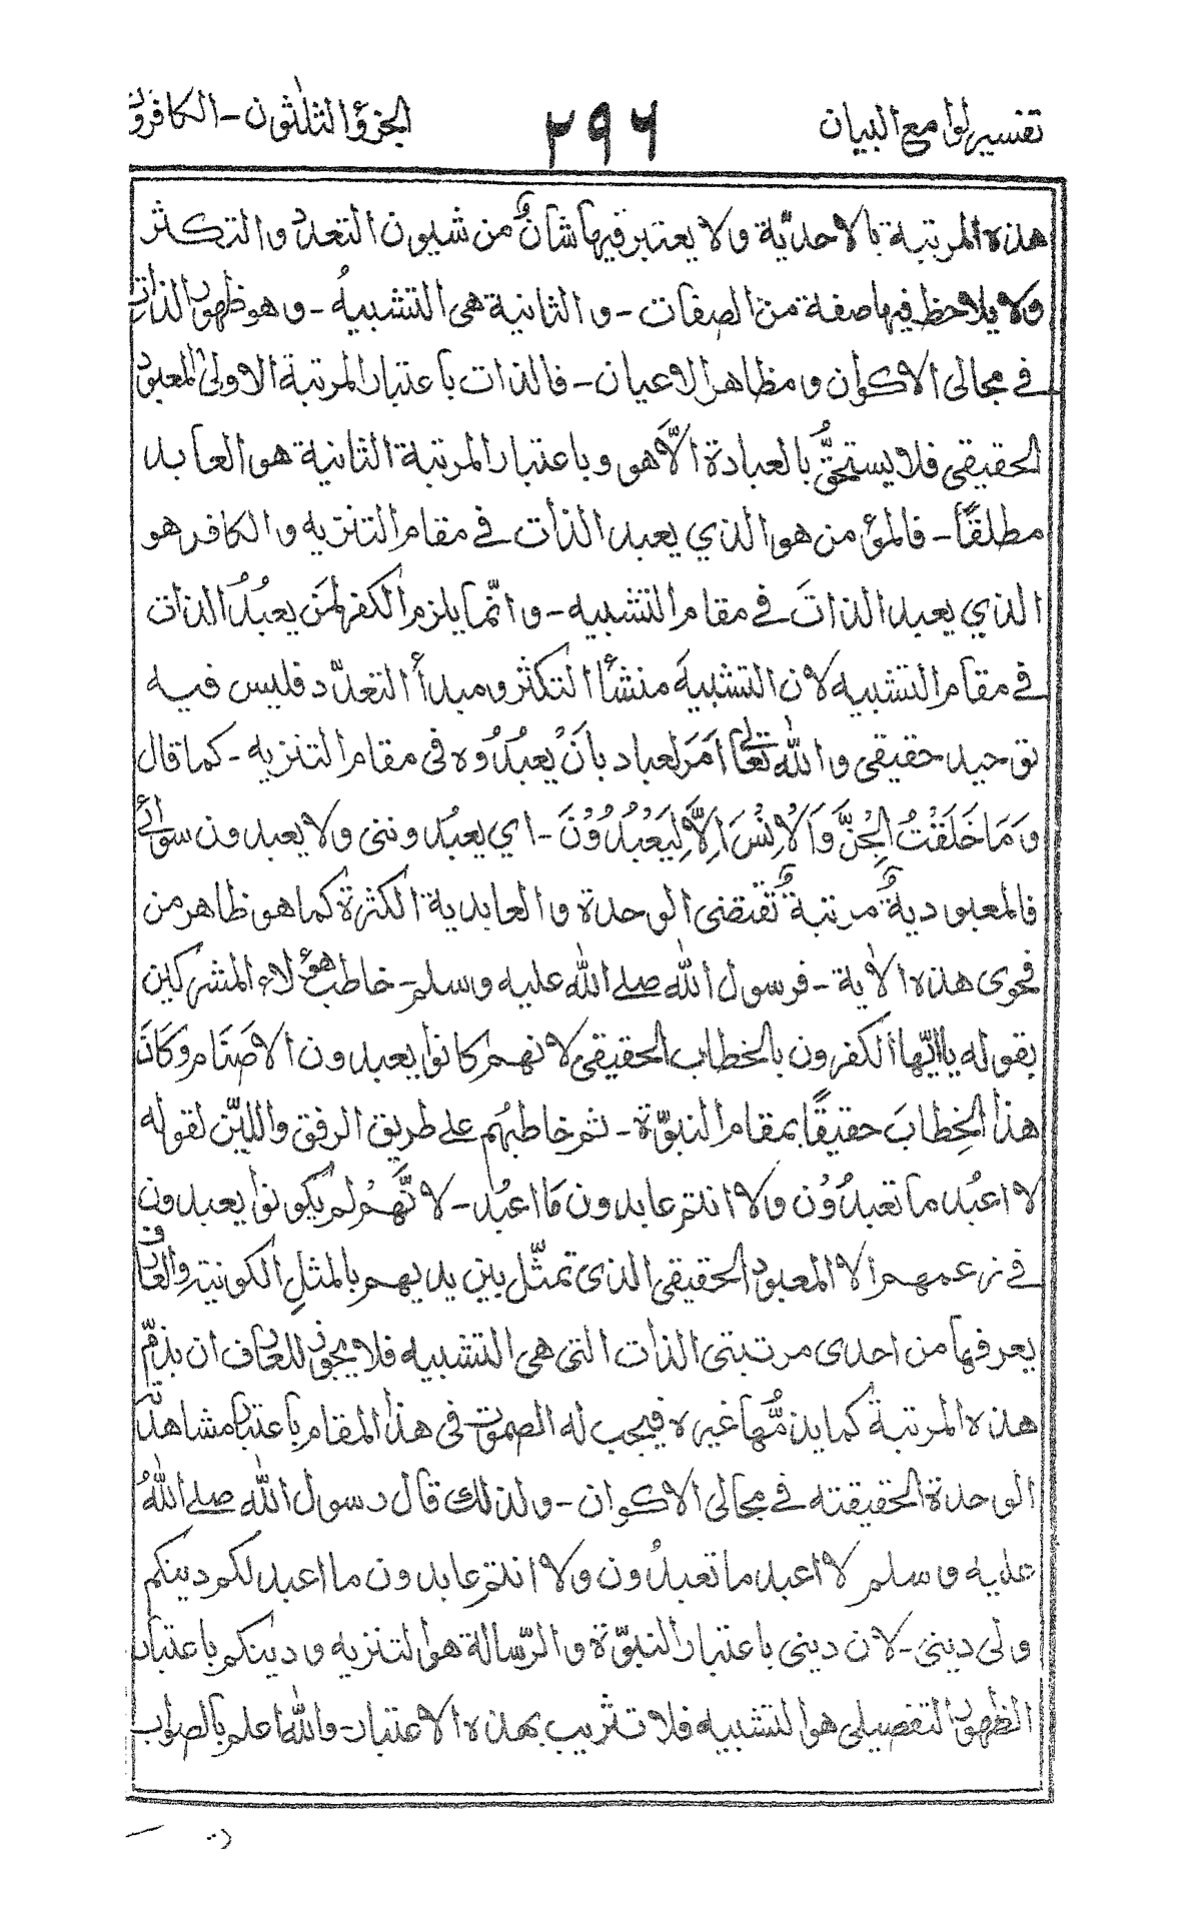 تفسير لوامع البيان ٢٩٦ الجزؤ الثلثون - الكافرون
هذه المرتبة بالاحديّة ولا يعتبر فيها شانٌ من شيون التعدد والتكثر
ولا يلاحظ فيها صفة من الصفات - والثانية هى التشبيهُ - وهو ظهور الذات
فى مجالى الاكوان ومظاهر الاعيان - فالذات باعتبار المرتبة الاولىٰ المعبود
الحقيقى فلا يستحقُّ بالعبادة الّا هو وباعتبار المرتبة الثانية هو العابد
مطلقًا - فالمؤمن هو الذي يعبد الذات فى مقام التنزيه والكافر هو
الذي يعبد الذاتَ فى مقام التشبيه - وانّما يلزم الكفر لمَن يعبُدُ الذات
فى مقام التشبيه لان التشبيهَ منشأ التكثر ومبدأ التعدّد فليس فيه
توحيد حقيقى والله تعالىٰ امَرَ لعباد بانْ يعبُدُوه فى مقام التنزيه - كما قال
وَمَا خَلَقْتُ الْجِنَّ وَالْاِنْسَ اِلَّا لِيَعْبُدُوْنَ - اي يعبُدوننى ولا يعبدون سوائى
فالمعبوديةُ مرتبةٌ تقتضى الوحدة والعابدية الكثرة كما هو ظاهر من
فحوى هذه الاٰية - فرسول الله صلے الله عليه وسلم - خاطب هؤلاء المشركين
بقوله يا ايّها الكفرون بالخطاب الحقيقى لانهم كانوا يعبدون الاصنام وكَانَ
هذا الخِطابَ حقيقًا بمقام النبوّة - ثم خاطبهُم على طريق الرفق واللين لقوله
لا اعبُد ما تعبدُوْن ولا انتم عابدون مَا اعبُد - لانَّهُمْ لم يكونوا يعبدون
فى زعمهم الا المعبود الحقيقى الذى تمثّل بين يديهم بالمثلِ الكونية والعارف
يعرفها من احدى مرتبتى الذات التى هى التشبيه فلا يجوز للعارف ان يذمّ
هذه المرتبة كما يذمُّها غيره فيجب له الصموت فى هذا المقام باعتبار مشاهدة
الوحدة الحقيقته فى مجالى الاكوان - ولذلك قال رسول الله صلے اللهُ
عليه وسلم لا اعبد ما تعبدُون ولا انتم عابدون ما اعبد لكم دينكم
ولى دينى - لان دينى باعتبار النبوّة والرّسالة هو التنزيه ودينكم باعتبار
الظهور التفصيلى هو التشبيه فلا تثريب بهذه الاعتبار - والله اعلم بالصواب